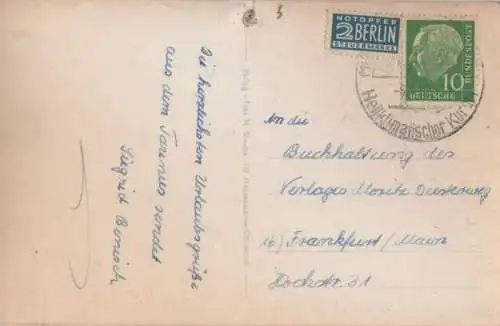 Die herzlichsten Urlaubsgrüße
aus dem Taunus sendet
Siegrid Benisch
NOTOPFER
2 BERLIN
STEUERMARKE
10
DEUTSCHE
BUNDESPOST
Heilklimatischer Kur
An die
Buchhaltung des
Verlages Moritz Diesterweg
16) Frankfurt/Main
Hochstr. 31